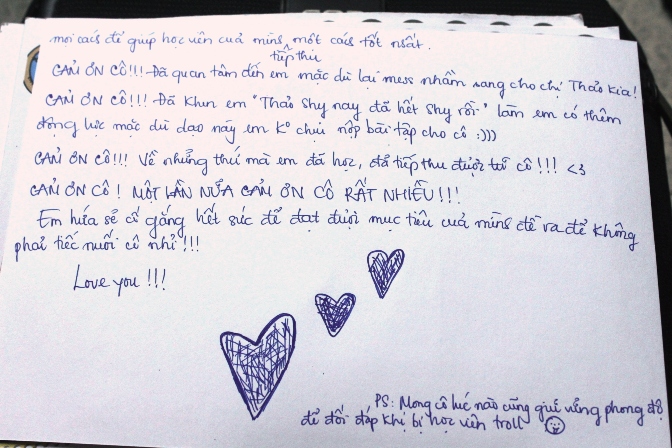 mọi cách để giúp học viên của mình một cách tốt nhất.
tiếp thu
CẢM ƠN CÔ!!! Đã quan tâm đến em mặc dù lại mess nhầm sang cho chị Thảo kia!
CẢM ƠN CÔ!!! Đã khen em "Thảo Shy nay đã hết shy rồi" làm em có thêm
động lực mặc dù dạo này em k° chịu nộp bài tập cho cô :)))
CẢM ƠN CÔ!!! Về những thứ mà em đã học, đã tiếp thu được từ cô!!! <3
CẢM ƠN CÔ! MỘT LẦN NỮA CẢM ƠN CÔ RẤT NHIỀU!!!
Em hứa sẽ cố gắng hết sức để đạt được mục tiêu của mình đề ra để không
phải tiếc nuối cô nhỉ!!!
Love you!!!
PS: Mong cô lúc nào cũng giữ vững phong độ
để đối đáp khi bị học viên troll